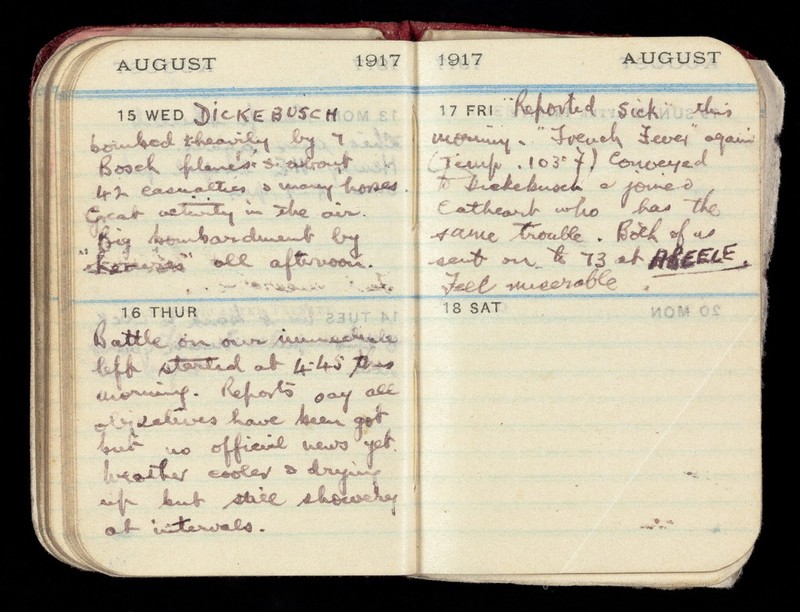 AUGUST 1917
15 WED DICKEBUSCH
bombed heavily by 7
Bosch planes & about
42 casualties & many horses.
Great activity in the air.
Big bombardment by
"heavies" all afternoon.
16 THUR
Battle on our immediate
left started at 4-45 this
morning. Reports say all
objectives have been got
but no official news yet.
Weather cooler & drying
up but still showery
at intervals.
1917 AUGUST
17 FRI "Reported Sick" this
morning. "Trench Fever" again
(Temp. 103°7) Conveyed
to Dickebusch & joined
Cathcart who has the
same trouble. Both of us
sent on to 73 at ABEELE.
Feel miserable.
18 SAT